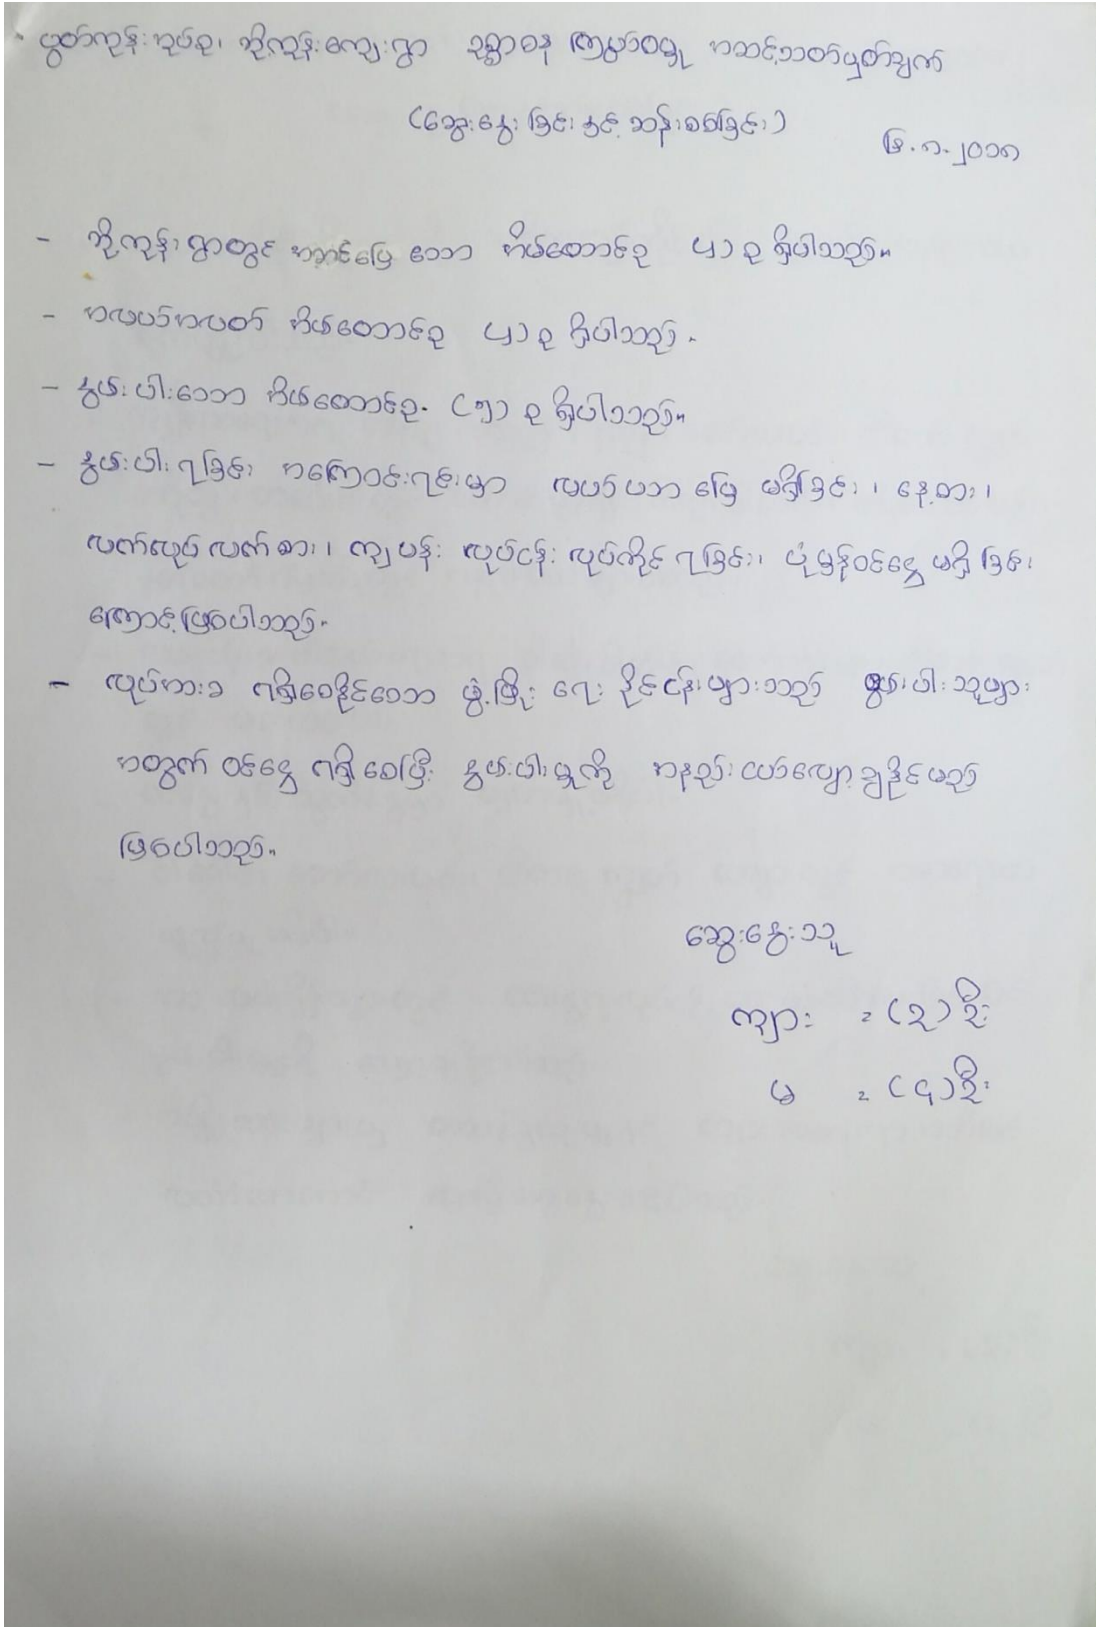 မွတ်ကုန်းအုပ်စု၊ ဘို့ကုန်းကျေးရွာ ဥစ္စာဓန ကြွယ်ဝမှု အဆင့်သတ်မှတ်ချက်
(ဆွေးနွေးခြင်းနှင့် ဆန်းစစ်ခြင်း)
၆.၈.၂၀၁၈
- ဘို့ကုန်းရွာတွင် အဆင်ပြေသော အိမ်ထောင်စု ၄) စု ရှိပါသည်။
- အလယ်အလတ် အိမ်ထောင်စု ၄) စု ရှိပါသည်။
- နွမ်းပါးသော အိမ်ထောင်စု (၅) စု ရှိပါသည်။
- နွမ်းပါးရခြင်း အကြောင်းရင်းမှာ လယ်ယာမြေ မရှိခြင်း၊ နေ့စား၊
လက်လုပ်လက်စား၊ ကျပန်း လုပ်ငန်း လုပ်ကိုင်ရခြင်း၊ ပုံမှန်ဝင်ငွေ မရှိခြင်း
ကြောင့်ဖြစ်ပါသည်။
- လုပ်အားခ ရရှိစေနိုင်သော ဖွံ့ဖြိုးရေး လုပ်ငန်းများသည် နွမ်းပါးသူများ
အတွက် ဝင်ငွေ ရရှိစေပြီး နွမ်းပါးမှုကို အနည်းငယ်လျှော့ချနိုင်မည်
ဖြစ်ပါသည်။
ဆွေးနွေးသူ
ကျား = (၃) ဦး
မ = (၄) ဦး